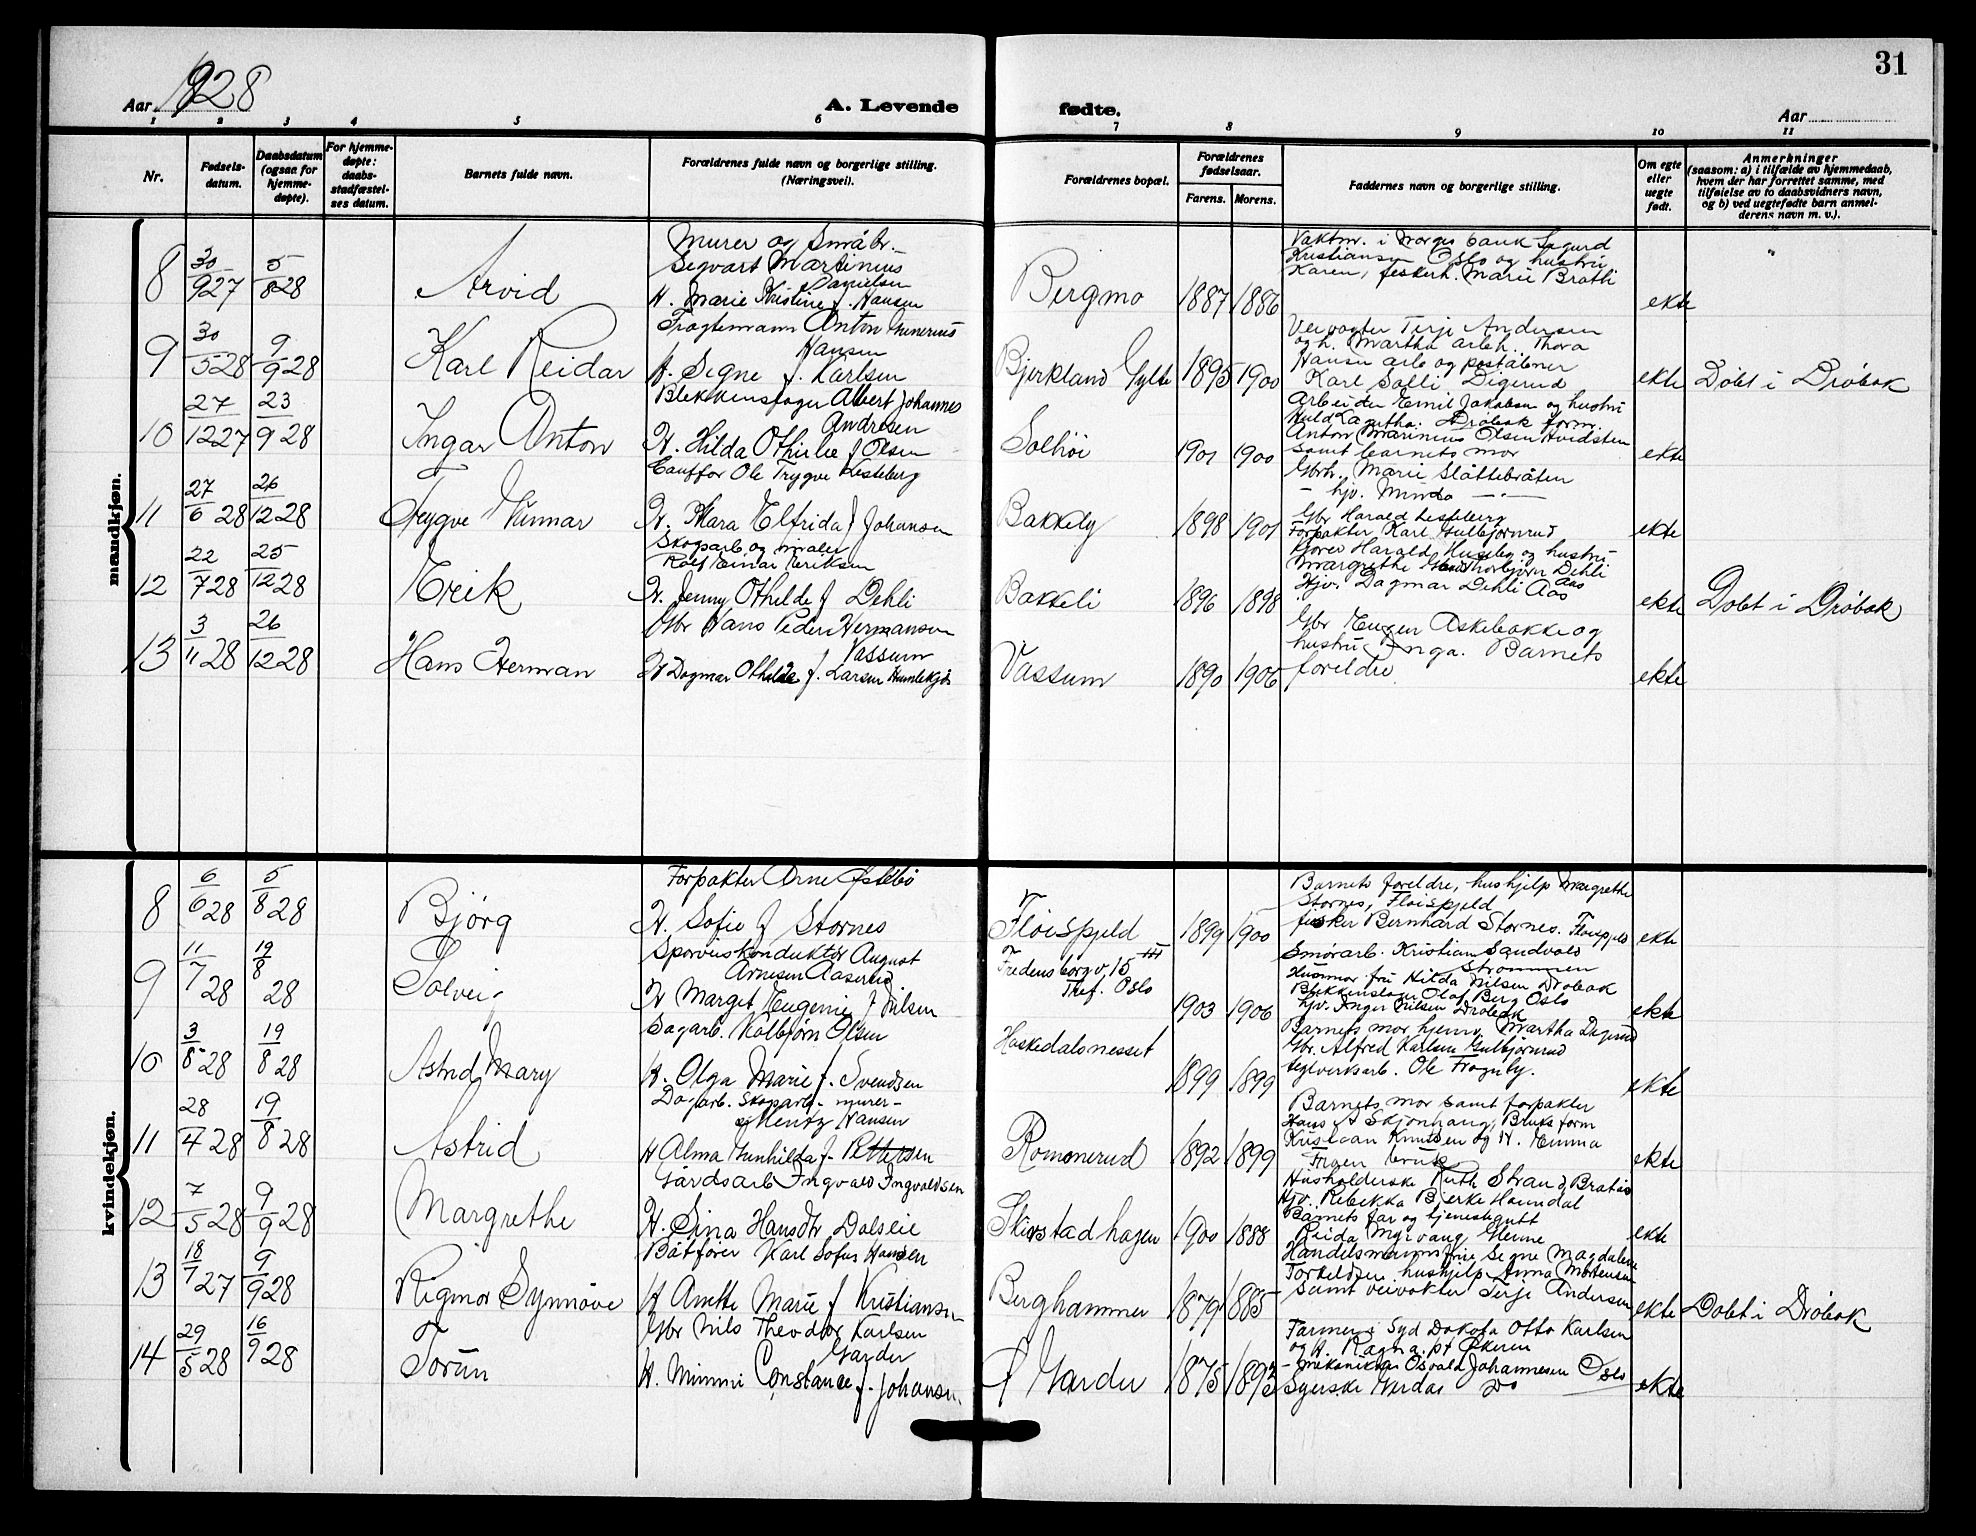 31
Aar 1928
A. Levende fødte.
Aar
1 2 3 4 5 6 7 8 9 10 11
Nr.
Fødsels-
datum.
Daabsdatum
(ogsaa for
hjemme-
døpte).
For hjemme-
døpte:
daabs-
stadfæstel-
ses datum.
Barnets fulde navn.
Forældrenes fulde navn og borgerlige stilling.
(Næringsvei).
Forældrenes bopæl.
Forældrenes
fødselsaar.
Farens. Morens.
Faddernes navn og borgerlige stilling.
Om egte
eller
uegte
født.
Anmerkninger
(saasom: a) i tilfælde av hjemmedaab,
hvem der har forrettet samme, med
tilføielse av to daabsvidners navn,
og b) ved uegtefødte barn anmel-
derens navn m. v.).
mandkjøn.
8 30/9 27 5/8 28 Arvid
Murer og Småbr.
Sigvart Martinius
Danielsen
H. Marie Kristine f. Hansen
Bergmo 1887 1886
Vaktm. i Norges bank Sigurd
Kristiansen Oslo og hustru
Karen, fiskerh. Marie Bratli
ekte
9 30/5 28 9/9 28 Karl Reidar
Anton Gunerius
Hansen
H. Signe f. Karlsen
Bjerkland Gylte 1895 1900
Veivogter Terje Andersen
og h. Martha arbh. Thora
Hansen arb og postålner
Karl Solli Digerud
ekte Döbt i Dröbak
10 27/12 27 23/9 28 Ingar Anton
Blekkenslager Albert Johannes
Andresen
H. Hilda Othilie f Olsen
Solhöi 1901 1900
Arbeider Emil Jakobsen og hustru
Hulda Agatha. Dröbak form.
Anton Marinius Olsen Hvidsten
samt barnets mor
ekte
11 27/6 28 26/12 28 Trygve Gunnar
Cauffor Ole Trygve Lesteberg
H. Klara Elfrida f Johansen
Bakkely 1898 1901
Gbr. Marie Slåttebråten
- hjv. Minda -"-
Gbr Harald Lesteberg
Forpakter Karl Gulbjörnrud
ekte
12 22/7 28 25/12 28 Erik
Skogsarb og maler
Rolf Einar Eriksen
H. Jenny Othilde f Dehli
Bakkeli 1896 1898
Harald Huseby og hustru
Margrethe Thorbjörn Dehli
Aas
Hjv. Dagmar Dehli Aas
ekte Döbt i Dröbak
13 3/11 28 26/12 28 Hans Herman
Gbr Hans Peder Hermansen
Vassum
H Dagmar Othilde f. Larsen Humlekjær
Vassum 1890 1906
Gbr Eugen Askebakke og
hustru Inga. Barnets
foreldre
ekte
kvindekjøn.
8 6/6 28 5/8 28 Björg
Forpakter Arne Östebö
H. Sofie f Stornes
Flöispjeld 1899 1900
Barnets foreldre, hushjelp Margrethe
Stornes, Flöispjeld
fisker Bernhard Stornes. Flöispjeld
ekte
9 11/7 28 19/8 28 Solveig
Sporveiskonduktör August
Arnesen Aaserud
H Margit Eugenie f Nilsen
Fredensborgv. 15 III
Thef. Oslo 1903 1906
Smörarb. Kristian Sandvold
Strömmen
Husmor fru Hilda Nilsen Dröbak
Blikkenslager Olaf Berg Oslo
hjv. Inger Nilsen Dröbak
ekte
10 3/8 28 19/8 28 Astrid Mary
Sagarb. Kolbjörn Olsen
H. Olga Marie f. Svendsen
Haskedalsnesset 1899 1899
Barnets mor hjemv. Martha Digerud
Gbr. Alfred Karlsen Gulbjörnrud
teglverksarb. Ole Frognby.
ekte
11 28/4 28 19/8 28 Astrid
Dagarb. Skogsarb. - murer -
Mentz Hansen
H Alma Gunhilda f. Pettersen
Rommerud 1892 1899
Barnets mor samt forpakter
Hans A Skjönhaug, Bruks form
Kristian Knutsen og H. Emma
Froen bruk
ekte
12 7/5 28 9/9 28 Margrethe
Gårdsarb Ingvald Ingvaldsen
H. Sina Hansdtr Dalseie
Skirstadhagen 1900 1888
Husholderske Ruth Strand, Bråtås
Hjv. Rebekka Bjerke Horndal
Barnets far og tjenestegutt
Reida Myrvang Glenne
ekte
13 18/7 27 9/9 28 Rigmor Synnöve
Båtförer Karl Sofus Hansen
H Anette Marie f Kristiansen
Berghammer 1879 1885
Handelsmannsfrue Signe Magdalene
Torkildsen hushjelp Anna Mortensen
samt veivokter Terje Andersen
ekte Döbt i Dröbak
14 29/5 28 16/9 28 Torun
Gbr Nils Theodor Karlsen
Garder
H. Mimmi Constance f. Johansen.
Garder 1875 1893
Farmer i Syd Dakota Otto Karlsen
og H. Ragna. pt Økeren
- Mekaniker Osvald Johannesen Oslo
Syerske Gerda Do
ekte